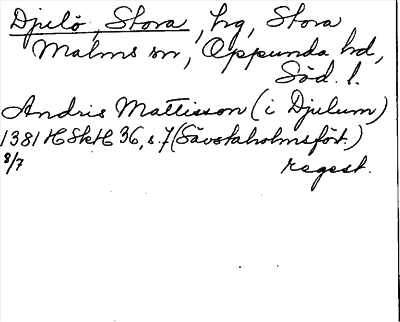 Djulö, Stora, hg, Stora
Malms sn, Oppunda hd,
Söd. l.
Andris Mattisson (i Djulum)
1381 HSkH 36, s. 7 (Sävstaholmsfört.)
8/7
regest.